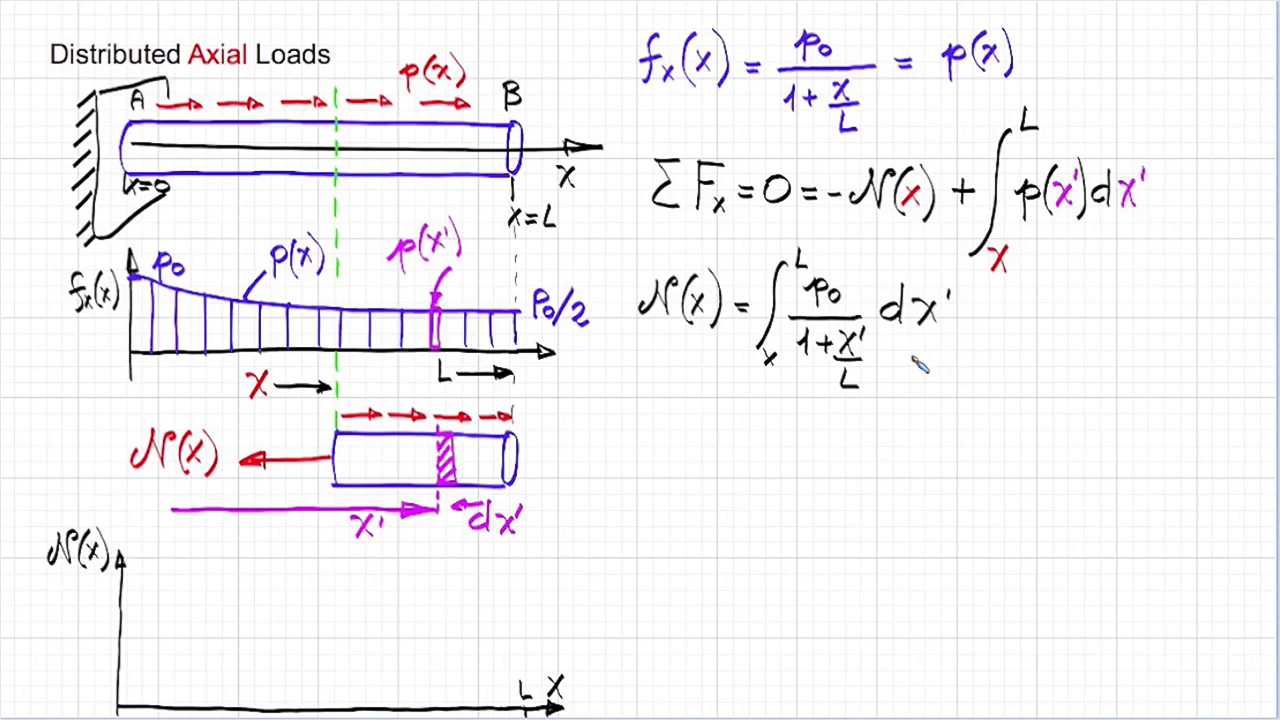 Distributed Axial Loads
p(x)
A
B
x=0
x
x=L
fx(x)
p0
p(x)
p(x')
P0/2
x
L
N(x)
x'
dx'
N(x)
L
x
fx(x) = p0 / (1 + x/L) = p(x)
ΣFx = 0 = -N(x) + ∫ₓᴸ p(x')dx'
N(x) = ∫ₓᴸ p0 / (1 + x'/L) dx'